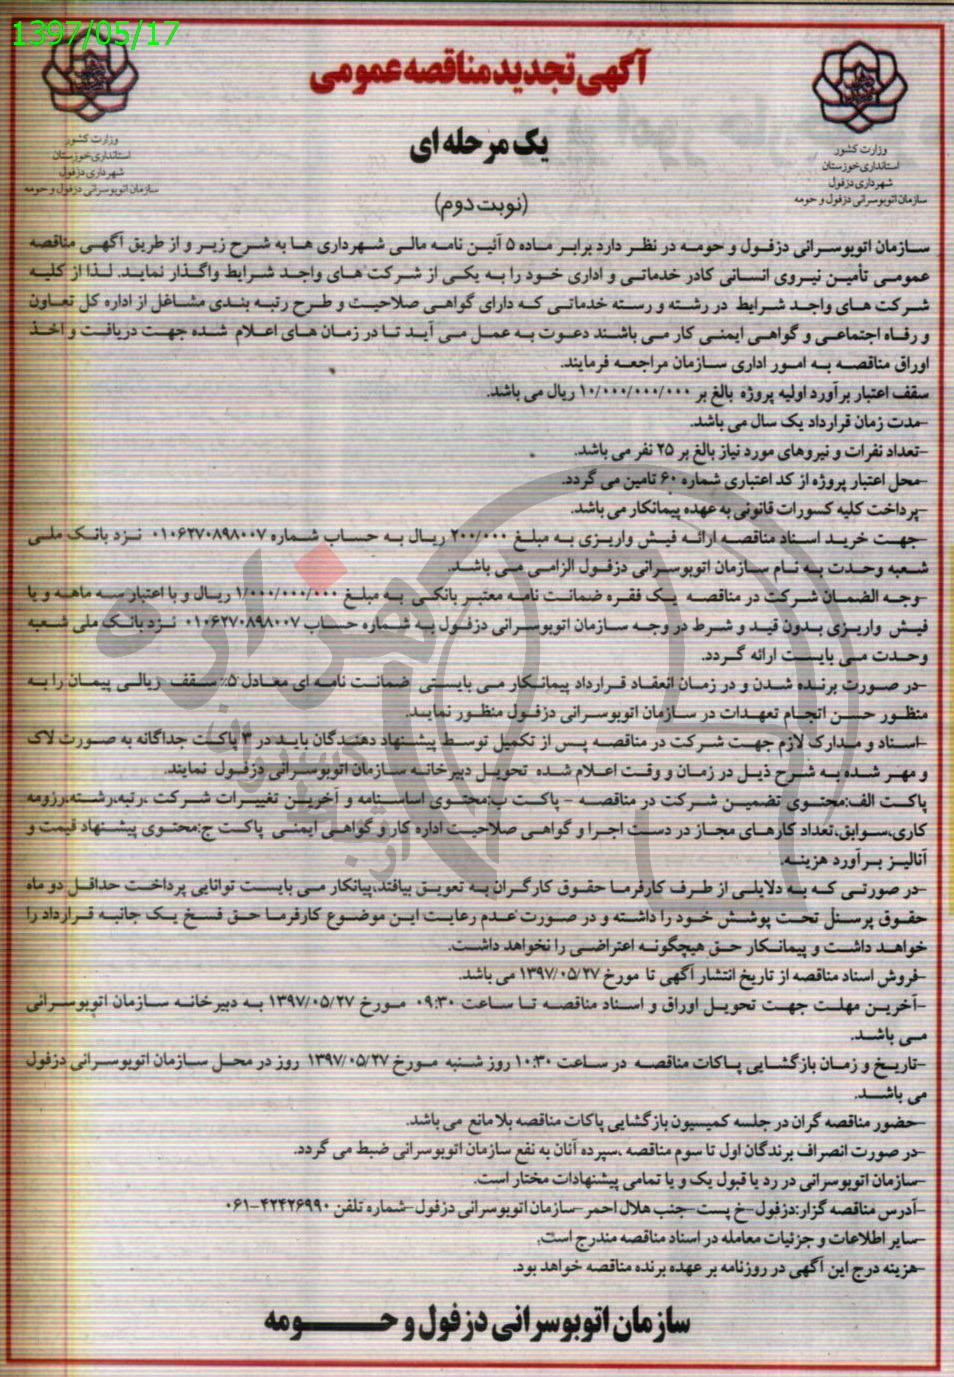 1397/05/17
آگهی تجدید مناقصه عمومی
یک مرحله ای
(نوبت دوم)
وزارت کشور
استانداری خوزستان
شهرداری دزفول
سازمان اتوبوسرانی دزفول و حومه
وزارت کشور
استانداری خوزستان
شهرداری دزفول
سازمان اتوبوسرانی دزفول و حومه
سازمان اتوبوسرانی دزفول و حومه در نظر دارد برابر ماده ۵ آئین نامه مالی شهرداری ها به شرح زیر و از طریق آگهی مناقصه
عمومی تأمین نیروی انسانی کادر خدماتی و اداری خود را به یکی از شرکت های واجد شرایط واگذار نماید. لذا از کلیه
شرکت های واجد شرایط در رشته و رسته خدماتی که دارای گواهی صلاحیت و طرح رتبه بندی مشاغل از اداره کل تعاون
و رفاه اجتماعی و گواهی ایمنی کار می باشند دعوت به عمل می آید تا در زمان های اعلام شده جهت دریافت و اخذ
اوراق مناقصه به امور اداری سازمان مراجعه فرمایند.
سقف اعتبار برآورد اولیه پروژه بالغ بر ۱۰/۰۰۰/۰۰۰/۰۰۰ ریال می باشد.
-مدت زمان قرارداد یک سال می باشد.
-تعداد نفرات و نیروهای مورد نیاز بالغ بر ۲۵ نفر می باشد.
-محل اعتبار پروژه از کد اعتباری شماره ۶۰ تامین می گردد.
-پرداخت کلیه کسورات قانونی به عهده پیمانکار می باشد.
-جهت خرید اسناد مناقصه ارائه فیش واریزی به مبلغ ۲۰۰/۰۰۰ ریال به حساب شماره ۰۱۰۶۲۷۰۸۹۸۰۰۷ نزد بانک ملی
شعبه وحدت به نام سازمان اتوبوسرانی دزفول الزامی می باشد.
-وجه الضمان شرکت در مناقصه یک فقره ضمانت نامه معتبر بانکی به مبلغ ۱/۰۰۰/۰۰۰/۰۰۰ ریال و با اعتبار سه ماهه و یا
فیش واریزی بدون قید و شرط در وجه سازمان اتوبوسرانی دزفول به شماره حساب ۰۱۰۶۲۷۰۸۹۸۰۰۷ نزد بانک ملی شعبه
وحدت می بایست ارائه گردد.
-در صورت برنده شدن و در زمان انعقاد قرارداد پیمانکار می بایستی ضمانت نامه ای معادل ۵٪ سقف ریالی پیمان را به
منظور حسن انجام تعهدات در سازمان اتوبوسرانی دزفول منظور نماید.
-اسناد و مدارک لازم جهت شرکت در مناقصه پس از تکمیل توسط پیشنهاد دهندگان باید در ۳ پاکت جداگانه به صورت لاک
و مهر شده به شرح ذیل در زمان و وقت اعلام شده تحویل دبیرخانه سازمان اتوبوسرانی دزفول نمایند.
پاکت الف:محتوی تضمین شرکت در مناقصه - پاکت ب:محتوی اساسنامه و آخرین تغییرات شرکت ،رتبه،رشته،رزومه
کاری،سوابق،تعداد کارهای مجاز در دست اجرا و گواهی صلاحیت اداره کار و گواهی ایمنی پاکت ج:محتوی پیشنهاد قیمت و
آنالیز برآورد هزینه.
-در صورتی که به دلایلی از طرف کارفرما حقوق کارگران به تعویق بیافتد،پیانکار می بایست توانایی پرداخت حداقل دو ماه
حقوق پرسنل تحت پوشش خود را داشته و در صورت عدم رعایت این موضوع کارفرما حق فسخ یک جانبه قرارداد را
خواهد داشت و پیمانکار حق هیچگونه اعتراضی را نخواهد داشت.
-فروش اسناد مناقصه از تاریخ انتشار آگهی تا مورخ ۱۳۹۷/۰۵/۲۷ می باشد.
-آخرین مهلت جهت تحویل اوراق و اسناد مناقصه تا ساعت ۰۹:۳۰ مورخ ۱۳۹۷/۰۵/۲۷ به دبیرخانه سازمان اتوبوسرانی
می باشد.
-تاریخ و زمان بازگشایی پاکات مناقصه در ساعت ۱۰:۳۰ روز شنبه مورخ ۱۳۹۷/۰۵/۲۷ روز در محل سازمان اتوبوسرانی دزفول
می باشد.
-حضور مناقصه گران در جلسه کمیسیون بازگشایی پاکات مناقصه بلامانع می باشد.
-در صورت انصراف برندگان اول تا سوم مناقصه ،سپرده آنان به نفع سازمان اتوبوسرانی ضبط می گردد.
-سازمان اتوبوسرانی در رد یا قبول یک و یا تمامی پیشنهادات مختار است.
-آدرس مناقصه گزار:دزفول-خ پست-جنب هلال احمر-سازمان اتوبوسرانی دزفول-شماره تلفن ۴۲۴۲۶۹۹۰-۰۶۱
-سایر اطلاعات و جزئیات معامله در اسناد مناقصه مندرج است.
-هزینه درج این آگهی در روزنامه بر عهده برنده مناقصه خواهد بود.
سازمان اتوبوسرانی دزفول و حومه
هزاره